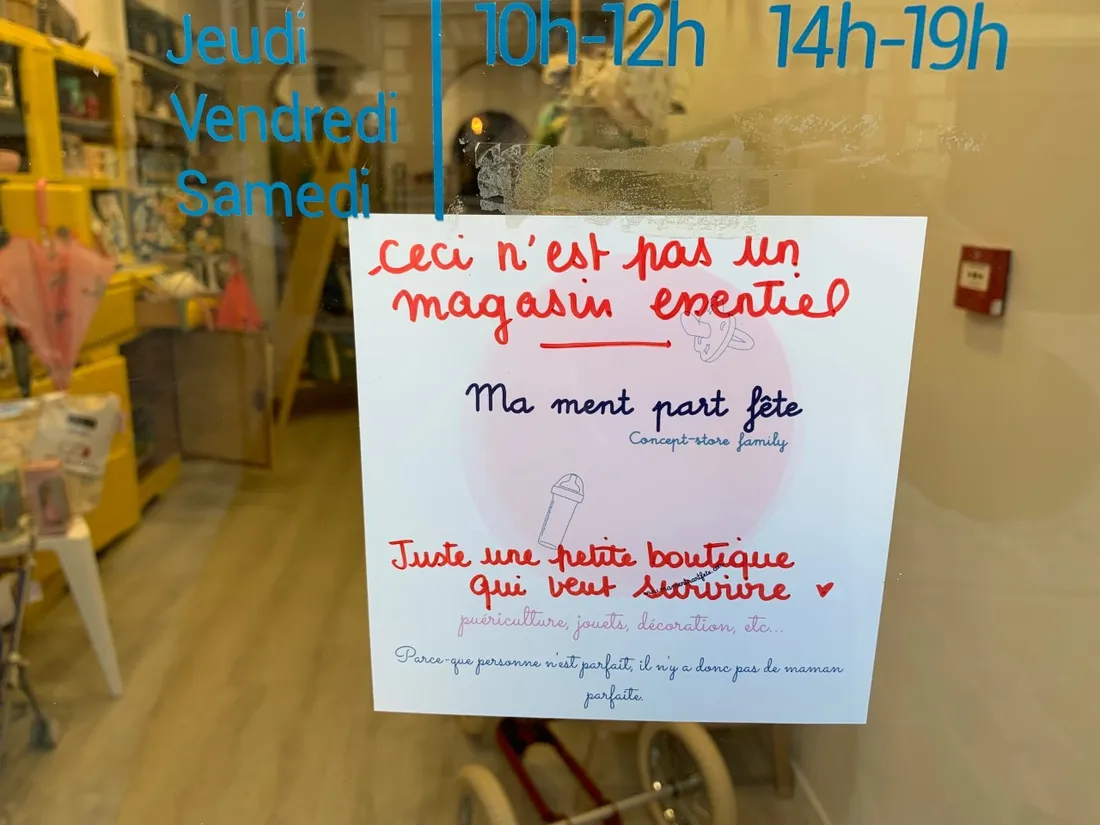 Jeudi 10h-12h 14h-19h
Vendredi
Samedi
Ceci n'est pas un
magasin essentiel
Ma ment part fête
Concept-store family
Juste une petite boutique
qui veut survivre ♥
puériculture, jouets, décoration, etc...
Parce-que personne n'est parfait, il n'y a donc pas de maman
parfaite.